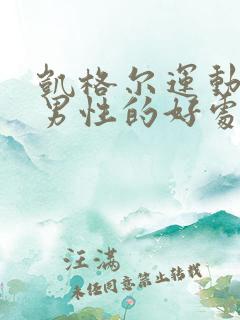 凱格尔運動
男性的好處
汪满
未经同意禁止转载